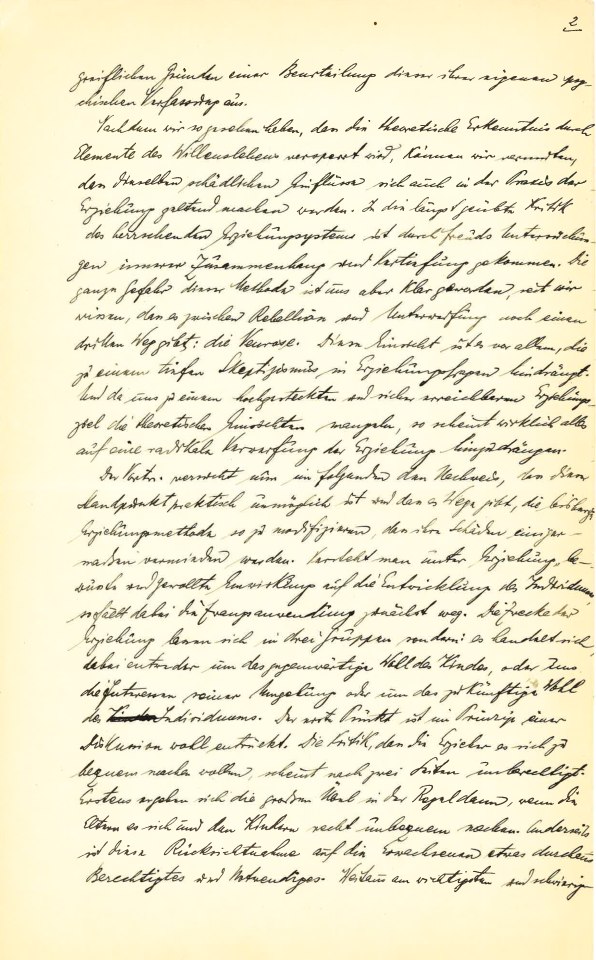 2
greiflichen Gründen einer Beurteilung dieser ihrer eigenen psy-
chischen Verfassung aus.
Nachdem wir so gesehen haben, dass die theoretische Erkenntnis durch
Elemente des Willenslebens versperrt wird, können wir vermuten,
dass dieselben schädlichen Einflüsse sich auch in der Praxis der
Erziehung geltend machen werden. In die längst geübte Kritik
des herrschenden Erziehungssystems ist durch Freuds Untersuchun-
gen innerer Zusammenhang und Vertiefung gekommen. Die
ganze Gefahr dieser Methode ist uns aber klar geworden, seit wir
wissen, dass es zwischen Rebellion und Unterwerfung noch einen
dritten Weg gibt: die Neurose. Diese Einsicht ist es vor allem, die
zu einem tiefen Skeptizismus in Erziehungsfragen hindrängt.
Und da uns zu einem hochgesteckten und sicher erreichbaren Erziehungs-
ziel die theoretischen Einsichten mangeln, so scheint wirklich alles
auf eine radikale Verwerfung der Erziehung hinzudrängen.
Der Vortr. versucht nun im folgenden den Nachweis, dass dieser
Standpunkt praktisch unmöglich ist und dass es Wege gibt, die bisherige
Erziehungsmethode so zu modifizieren, dass ihre Schäden einiger-
maßen vermieden werden. Versteht man unter Erziehung „be-
wusste und gewollte Einwirkung auf die Entwicklung des Individuums,
so fällt dabei die Zwangsanwendung zunächst weg. Die Zwecke der
Erziehung lassen sich in drei Gruppen sondern: es handelt sich
dabei entweder um das gegenwärtige Wohl des Kindes, oder um
die Interessen seiner Umgebung oder um das zukünftige Wohl
des Individuums. Der erste Punkt ist im Prinzip einer
Diskussion wohl entrückt. Die Kritik, dass die Erzieher es sich zu
bequem machen wollen, scheint nach zwei Seiten unberechtigt.
Erstens ergeben sich die großen Übel in der Regel dann, wenn die
Eltern es sich und den Kindern recht unbequem machen. Anderseits
ist diese Rücksichtnahme auf die Erwachsenen etwas durchaus
Berechtigtes und Notwendiges. Weitaus am wichtigsten und schwierig-